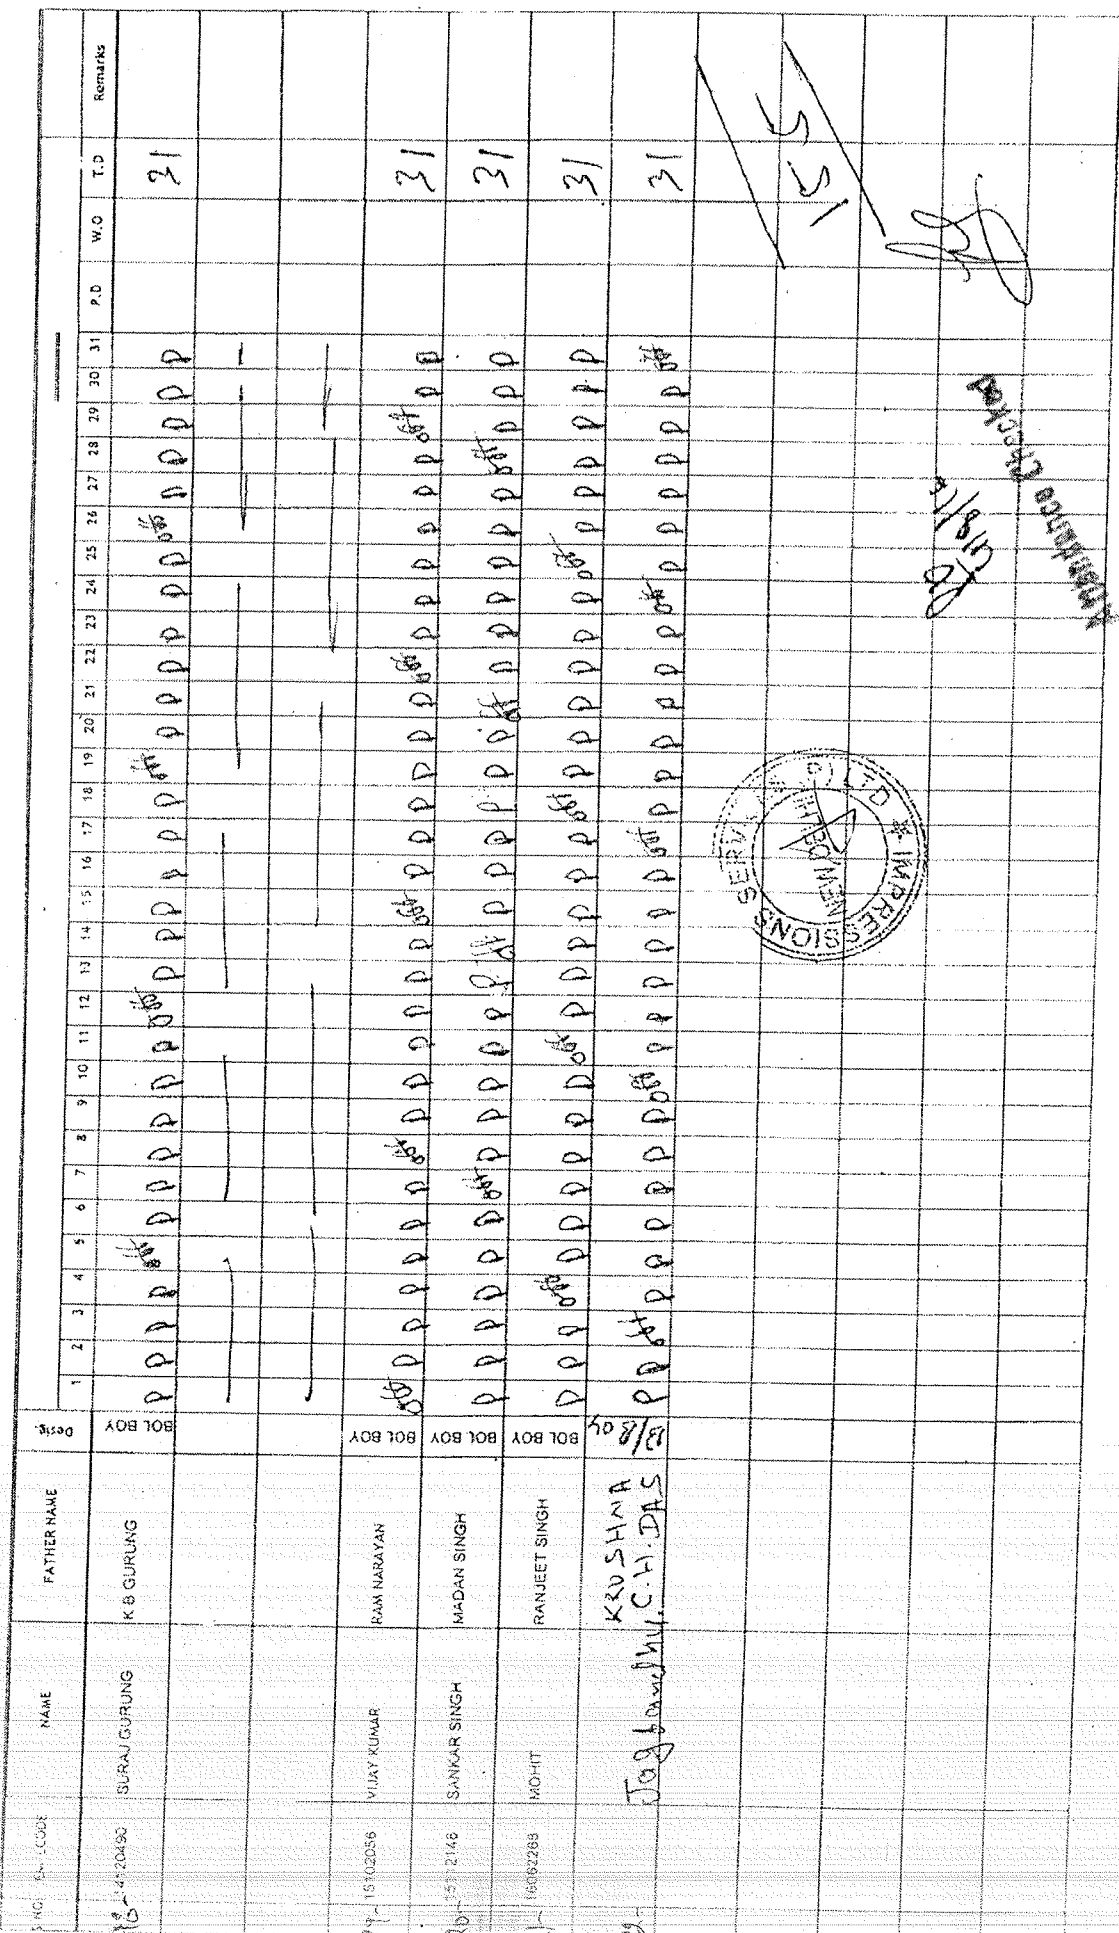 NAME FATHER NAME Desig. 1 2 3 4 5 6 7 8 9 10 11 12 13 14 15 16 17 18 19 20 21 22 23 24 25 26 27 28 29 30 31 P.D W.O T.D Remarks
SURAJ GURUNG K B GURUNG BOL BOY P P P P off P P P P P P off P P P P P P off P P P P P P off P P P P P 31
15102056 VIJAY KUMAR RAM NARAYAN BOL BOY off P P P P P P off P P P P P P off P P P P P P off P P P P P P off P P 31
SANKAR SINGH MADAN SINGH BOL BOY P P P P P P off P P P P P P off P P P P P off P P P P P P P off P P P 31
16062268 MOHIT RANJEET SINGH BOL BOY P P P off P P P P P P off P P P P P P off P P P P P P off P P P P P P 31
Jagbandhu KRUSHNA C.H. DAS B/Boy P P off P P P P P P off P P P P P P off P P P P P P off P P P P P P off 31
155
IMPRESSIONS SERV LTD
NEW DELHI
Attendance Checked